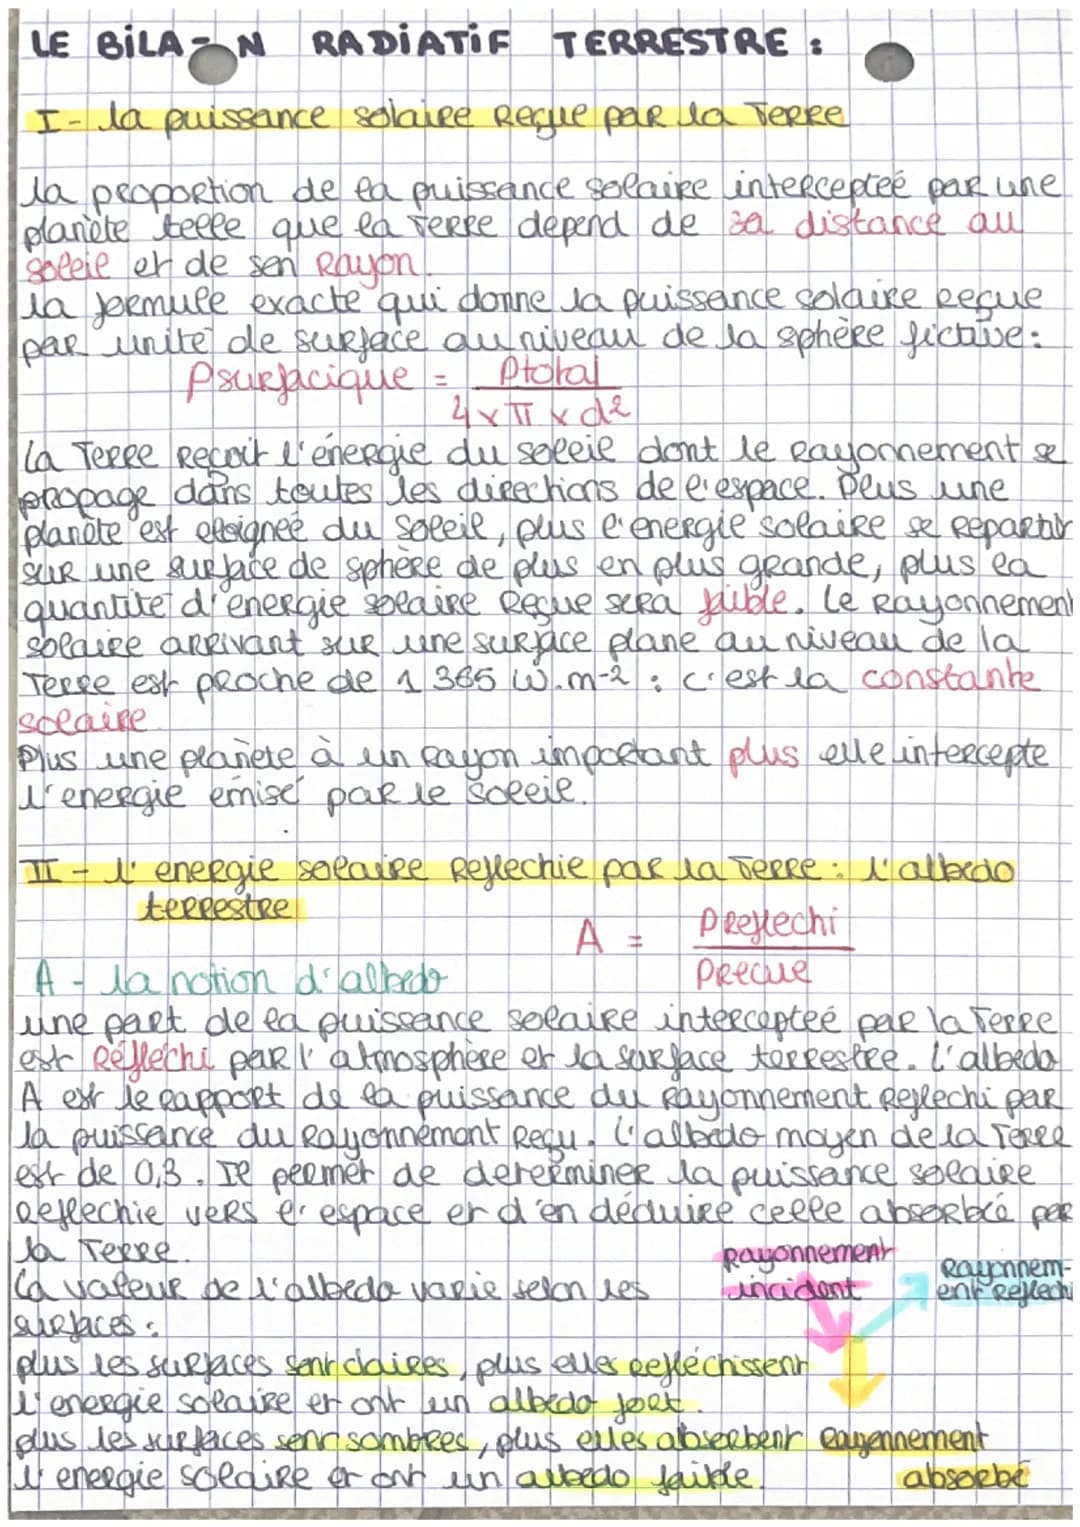 LE BiLAN RADiATiF TERRESTRE :
I - la puissance solaire Reçue par la Terre
la proportion de la puissance solaire interceptée par une
planète telle que la Terre depend de sa distance au
soleil et de son Rayon.
la formule exacte qui donne la puissance solaire Reçue
par unité de surface au niveau de la sphère fictive :
Psurfacique = Ptotal
4 x π x d²
La Terre Reçoit l'énergie du soleil dont le Rayonnement se
propage dans toutes les directions de l'espace. Plus une
planète est eloignée du soleil, plus l'energie solaire se Repartir
sur une surface de sphère de plus en plus grande, plus la
quantité d'energie solaire Reçue sera faible. Le Rayonnement
solaire arrivant sur une surface plane au niveau de la
Terre est proche de 1 365 W.m-2 : c'est la constante
solaire.
Plus une planète à un rayon important plus elle intercepte
l'energie émise par le soleil.
II - l'energie solaire Reflechie par la Terre : l'albedo
terrestre
A = Preflechi
Precue
A - la notion d'albedo
une part de la puissance solaire interceptée par la Terre
est Réflechi par l'atmosphère et la surface terrestre. L'albedo
A est le rapport de la puissance du rayonnement Reflechi par
la puissance du Rayonnement Reçu. L'albedo moyen de la Terre
est de 0,3. Il permet de determiner la puissance solaire
Reflechie vers l'espace et d'en déduire celle absorbée par
la Terre.
Rayonnement
incident
Rayonnem-
ent Reflechi
La valeur de l'albedo varie selon les
surfaces :
plus les surfaces sont claires, plus elles refléchissent
l'energie solaire et ont un albedo fort.
plus les surfaces sont sombres, plus elles absorbent
l'energie solaire et ont un albedo faible.
Rayonnement
absorbé